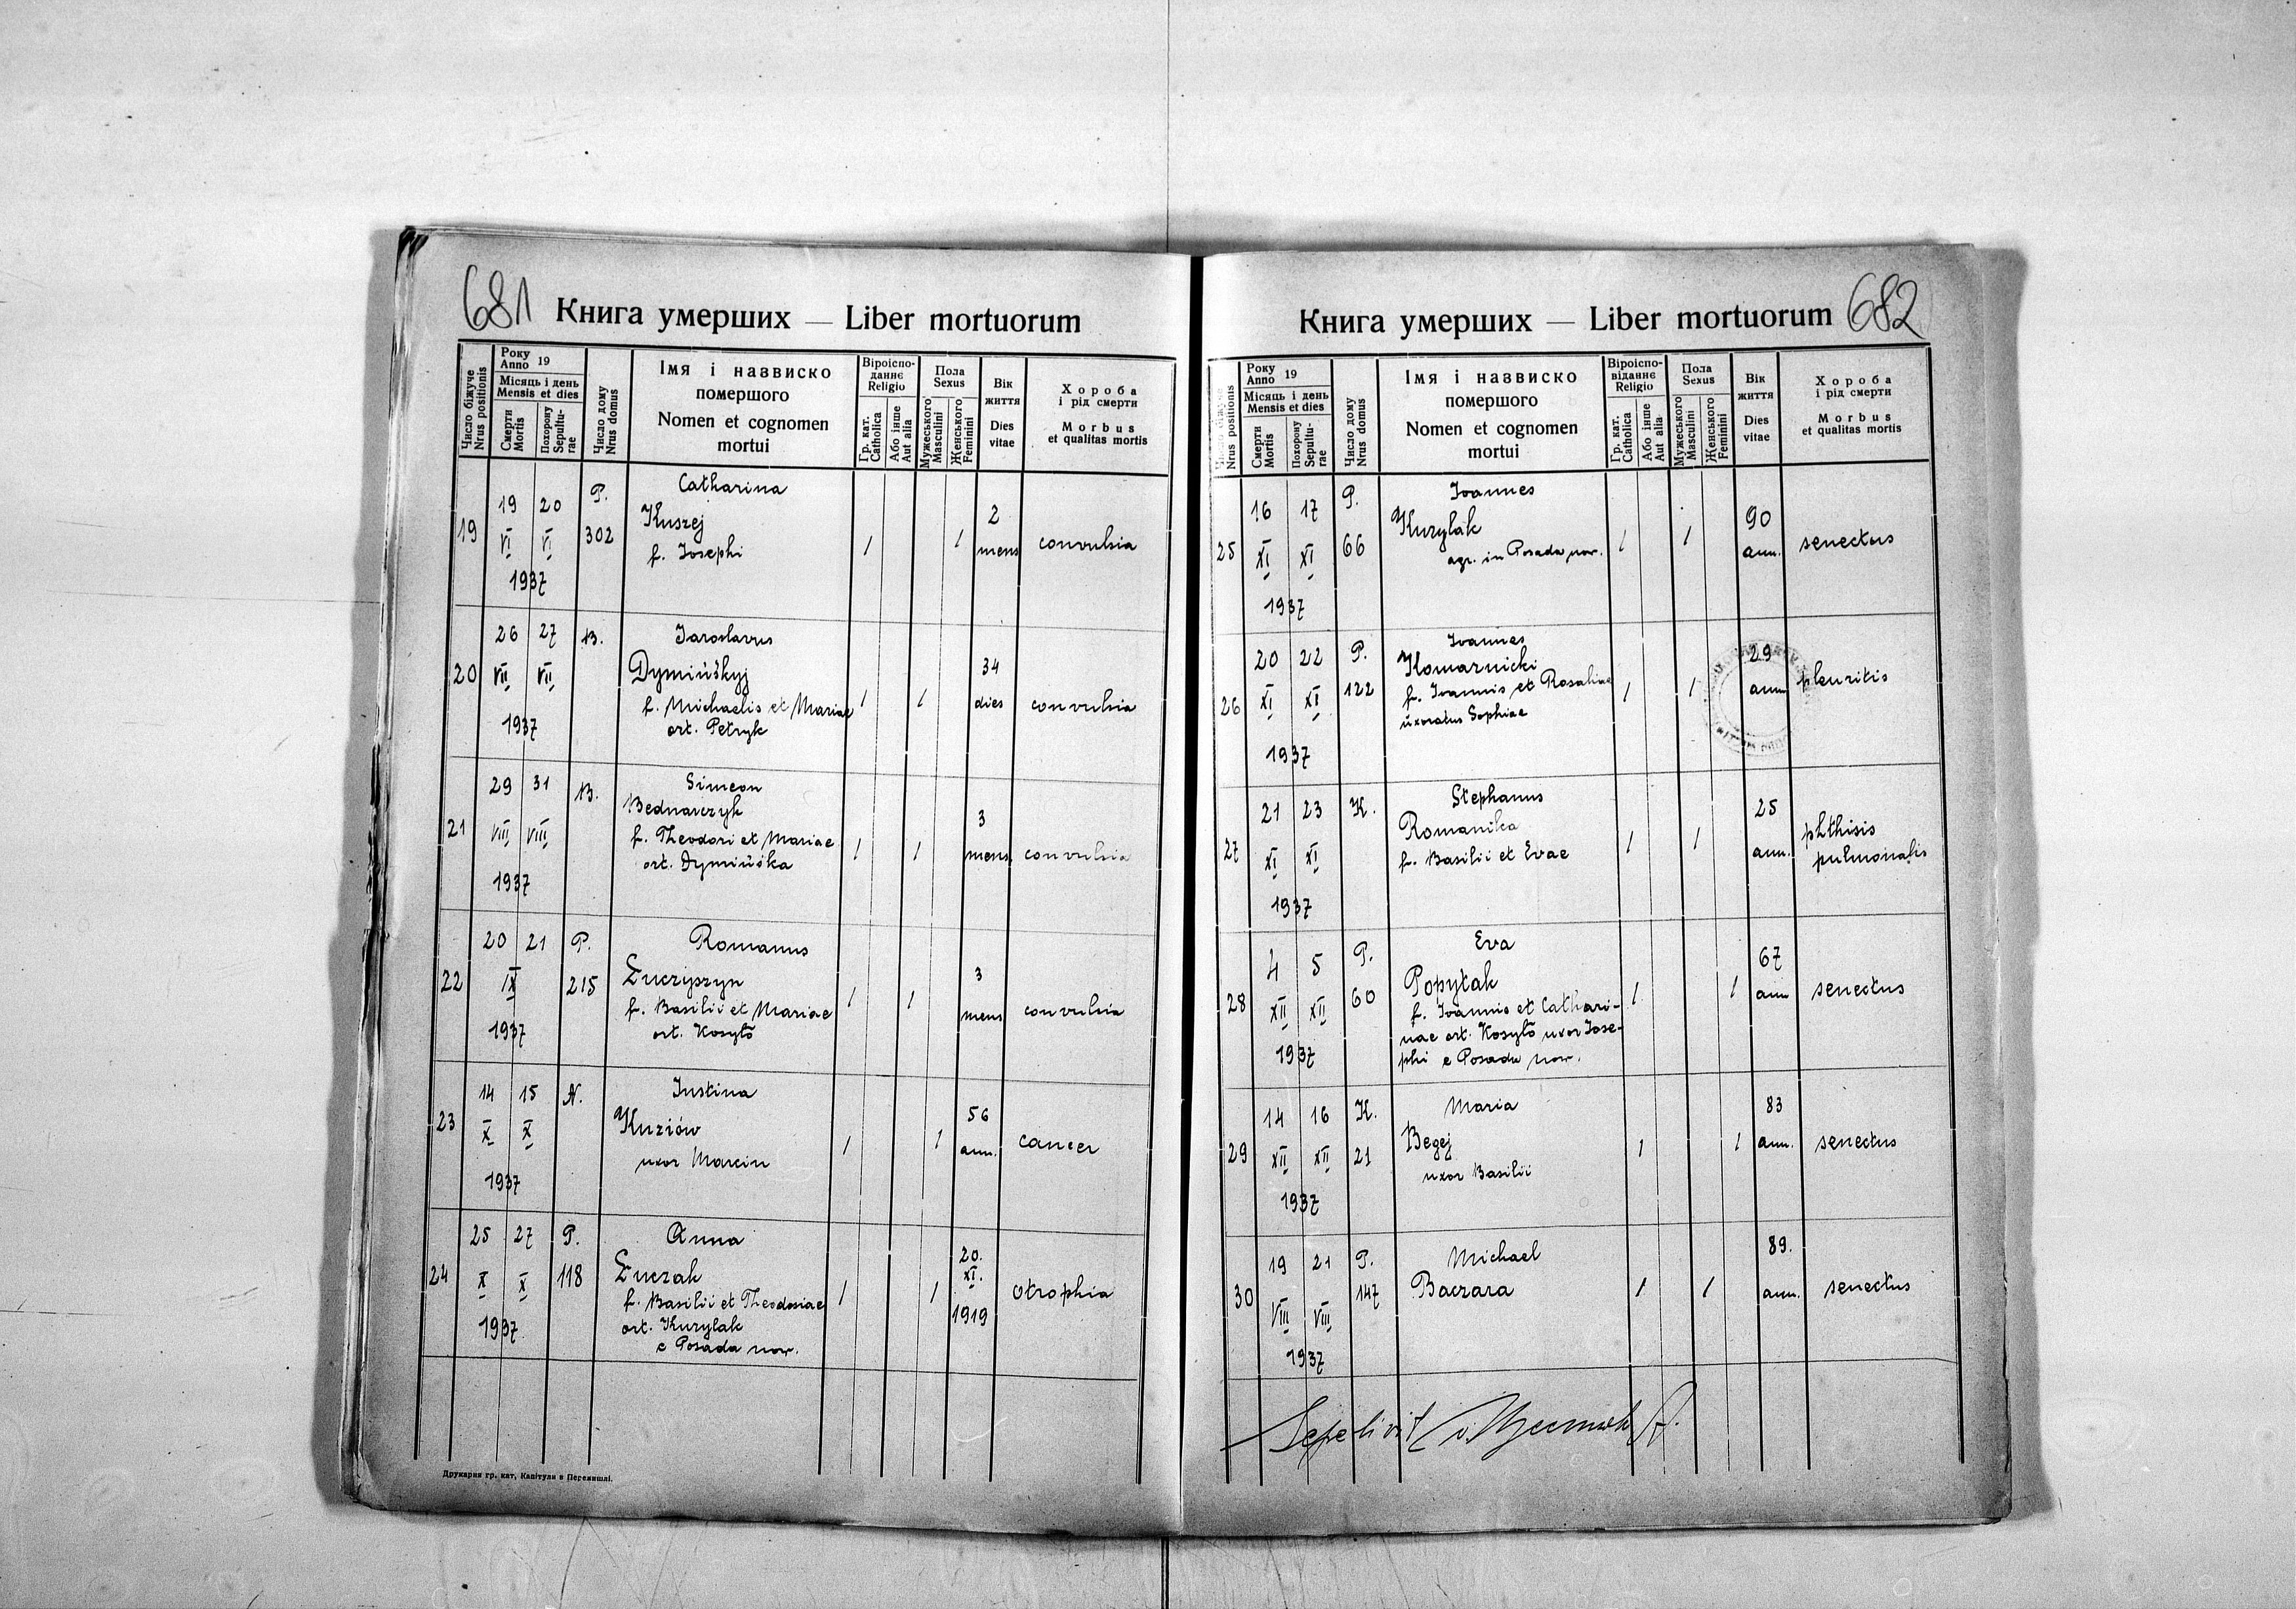 681 Книга умерших — Liber mortuorum
Число біжуче
Nrus positionis
Року
Anno 19
Місяць і день
Mensis et dies
Смерти
Mortis
Похорону
Sepultu-
rae
Число дому
Nrus domus
Імя і назвиско
помершого
Nomen et cognomen
mortui
Віроіспо-
даннє
Religio
Гр. кат.
Catholica
Або інше
Aut alia
Пола
Sexus
Мужеського
Masculini
Женського
Feminini
Вік
життя
Dies
vitae
Хороба
і рід смерти
Morbus
et qualitas mortis
19
19 20
VI VI
1937
P.
302
Catharina
Kuszej
f. Josephi
/ /
2
mens
convulsia
20
26 27
VII VII
1937
B.
Jaroslavus
Dymińskyj
f. Michaelis et Mariae
ort. Petryk
/ /
34
dies
convulsia
21
29 31
VIII VIII
1937
B.
Simeon
Bednarczyk
f. Theodori et Mariae
ort. Dymińska
/ /
3
mens.
convulsia
22
20 21
IX
1937
P.
215
Romanus
Łuczyszyn
f. Basilii et Mariae
ort. Kosyło
/ /
3
mens
convulsia
23
14 15
X X
1937
N.
Justina
Kuziów
uxor Marcin
/ /
56
ann.
cancer
24
25 27
X X
1937
P.
118
Anna
Łuczak
f. Basilii et Theodosiae
ort. Kurylak
e Posada now.
/ /
20.
XI.
1919
otrophia
Друкарня гр. кат. Капітули в Перемишлі.
Книга умерших — Liber mortuorum 682
Nrus positionis
Року
Anno 19
Місяць і день
Mensis et dies
Смерти
Mortis
Похорону
Sepultu-
rae
Число дому
Nrus domus
Імя і назвиско
помершого
Nomen et cognomen
mortui
Віроіспо-
віданнє
Religio
Гр. кат.
Catholica
Або інше
Aut alia
Пола
Sexus
Мужеського
Masculini
Женського
Feminini
Вік
життя
Dies
vitae
Хороба
і рід смерти
Morbus
et qualitas mortis
25
16 17
XI XI
1937
P.
66
Joannes
Kurylak
agr. in Posada now.
/ /
90
ann.
senectus
26
20 22
XI XI
1937
P.
122
Joannes
Komarnicki
f. Joannis et Rosaliae
uxoratus Sophiae
/ /
29
ann
pleuritis
27
21 23
XI XI
1937
K.
Stephanus
Romanika
f. Basilii et Evae
/ /
25
ann.
phthisis
pulmonalis
28
4 5
XII XII
1937
P.
60
Eva
Popytak
f. Joannis et Cathari-
nae ort. Kosyło uxor Jose-
phi e Posada now.
/ /
67
ann
senectus
29
14 16
XII XII
1937
K.
21
Maria
Begej
uxor Basilii
/ /
83
ann.
senectus
30
19 21
VIII VIII
1937
P.
147
Michael
Baczara
/ /
89.
ann.
senectus
Sepelivit